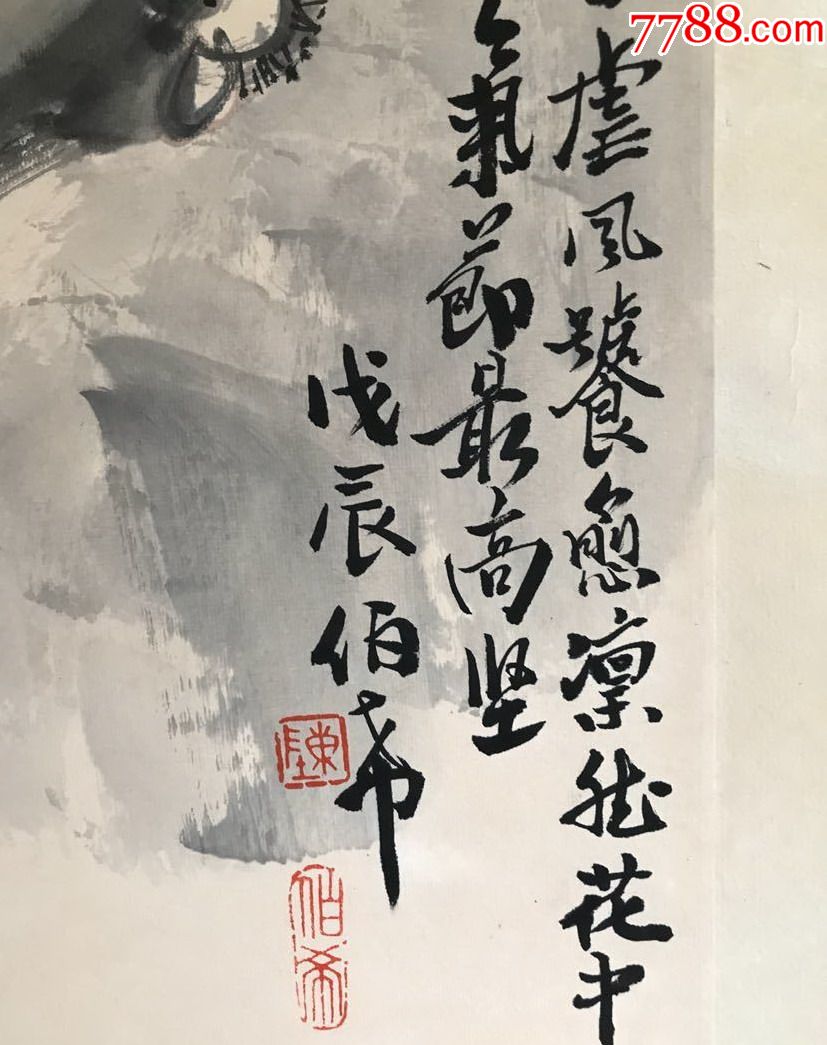 7788.com
虐風饕愈凛然花中
氣節最高坚
戊辰伯希
陳
伯希